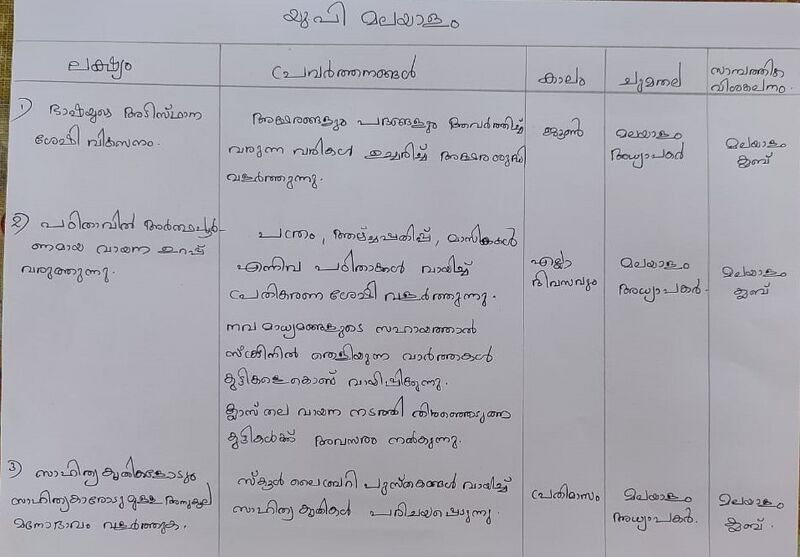 യു പി മലയാളം
ലക്ഷ്യം
പ്രവർത്തനങ്ങൾ
കാലം
ചുമതല
സാമ്പത്തിക
വിശകലനം.
1) ഭാഷയുടെ അടിസ്ഥാന
ശേഷി വികസനം.
അക്ഷരങ്ങളും പദങ്ങളും ആവർത്തിച്ച്
വരുന്ന വരികൾ ഉച്ചരിച്ച് അക്ഷരശുദ്ധി
വളർത്തുന്നു.
ജൂൺ
മലയാളം
അധ്യാപകർ
മലയാളം
ക്ലബ്
2) പഠിതാവിൽ അർത്ഥപൂർ-
ണമായ വായന ഉറപ്പ്
വരുത്തുന്നു.
പത്രം, ആഴ്ച്ചപ്പതിപ്പ്, മാസികകൾ
എന്നിവ പഠിതാക്കൾ വായിച്ച്
പ്രതികരണ ശേഷി വളർത്തുന്നു.
നവ മാധ്യമങ്ങളുടെ സഹായത്താൽ
സ്ക്രീനിൽ തെളിയുന്ന വാർത്തകൾ
കുട്ടികളെകൊണ്ട് വായിപ്പിക്കുന്നു.
ക്ലാസ് തല വായന നടത്തി തിരഞ്ഞെടുത്ത
കുട്ടികൾക്ക് അവസരം നൽകുന്നു.
എല്ലാ
ദിവസവും
മലയാളം
അധ്യാപകർ.
മലയാളം
ക്ലബ്
3) സാഹിത്യ കൃതികളോടും
സാഹിത്യകാരോടുമുള്ള അനുകൂല
മനോഭാവം വളർത്തുക.
സ്കൂൾ ലൈബ്രറി പുസ്തകങ്ങൾ വായിച്ച്
സാഹിത്യ കൃതികൾ പരിചയപ്പെടുന്നു.
പ്രതിമാസം
മലയാളം
അധ്യാപകർ.
മലയാളം
ക്ലബ്.